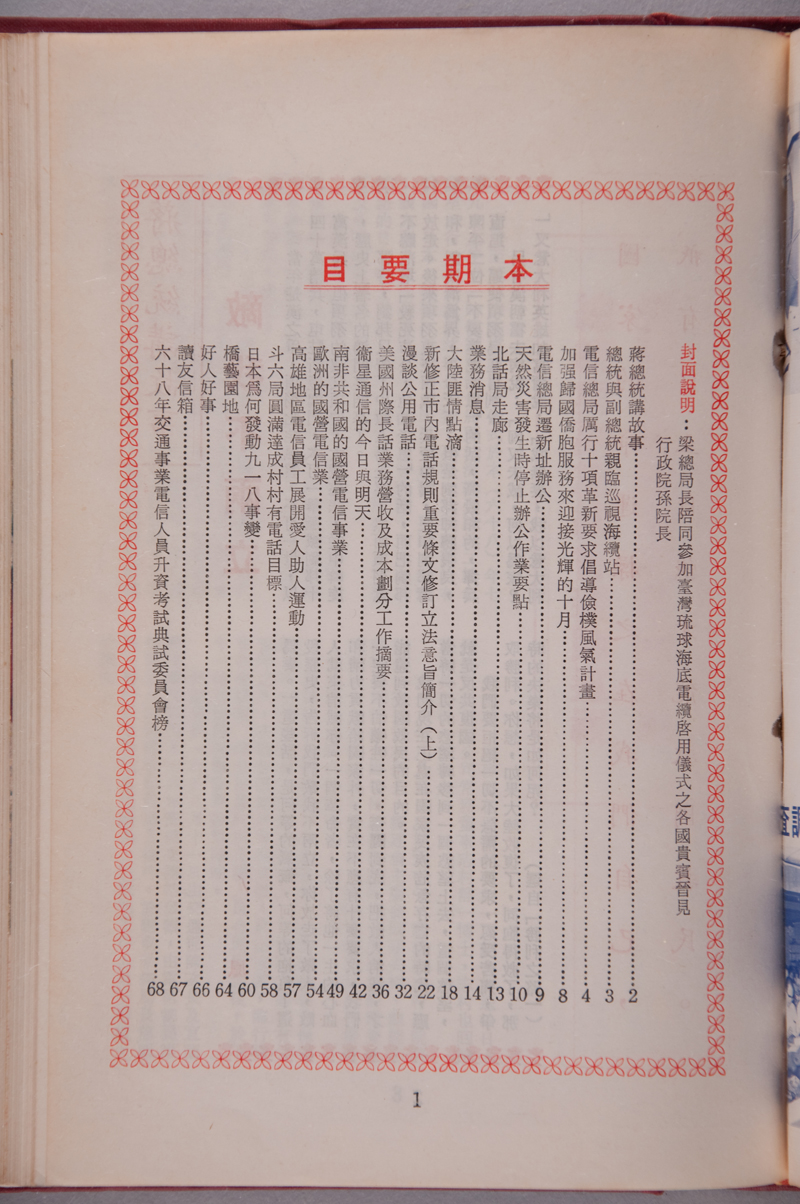 本期要目
封面說明：梁總局長陪同參加臺灣琉球海底電纜啓用儀式之各國貴賓晉見
行政院孫院長
蔣總統講故事……2
總統與副總統親臨巡視海纜站……3
電信總局厲行十項革新要求倡導儉樸風氣計畫……4
加强歸國僑胞服務來迎接光輝的十月……8
電信總局遷新址辦公……9
天然災害發生時停止辦公作業要點……10
北話局走廊……13
業務消息……14
大陸匪情點滴……18
新修正市內電話規則重要條文修訂立法意旨簡介（上）……22
漫談公用電話……32
美國州際長話業務營收及成本劃分工作摘要……36
衞星通信的今日與明天……42
南非共和國的國營電信事業……49
歐洲的國營電信業……54
高雄地區電信員工展開愛人助人運動……57
斗六局圓滿達成村村有電話目標……58
日本爲何發動九一八事變……60
橋藝園地……64
好人好事……66
讀友信箱……67
六十八年交通事業電信人員升資考試典試委員會榜……68
1